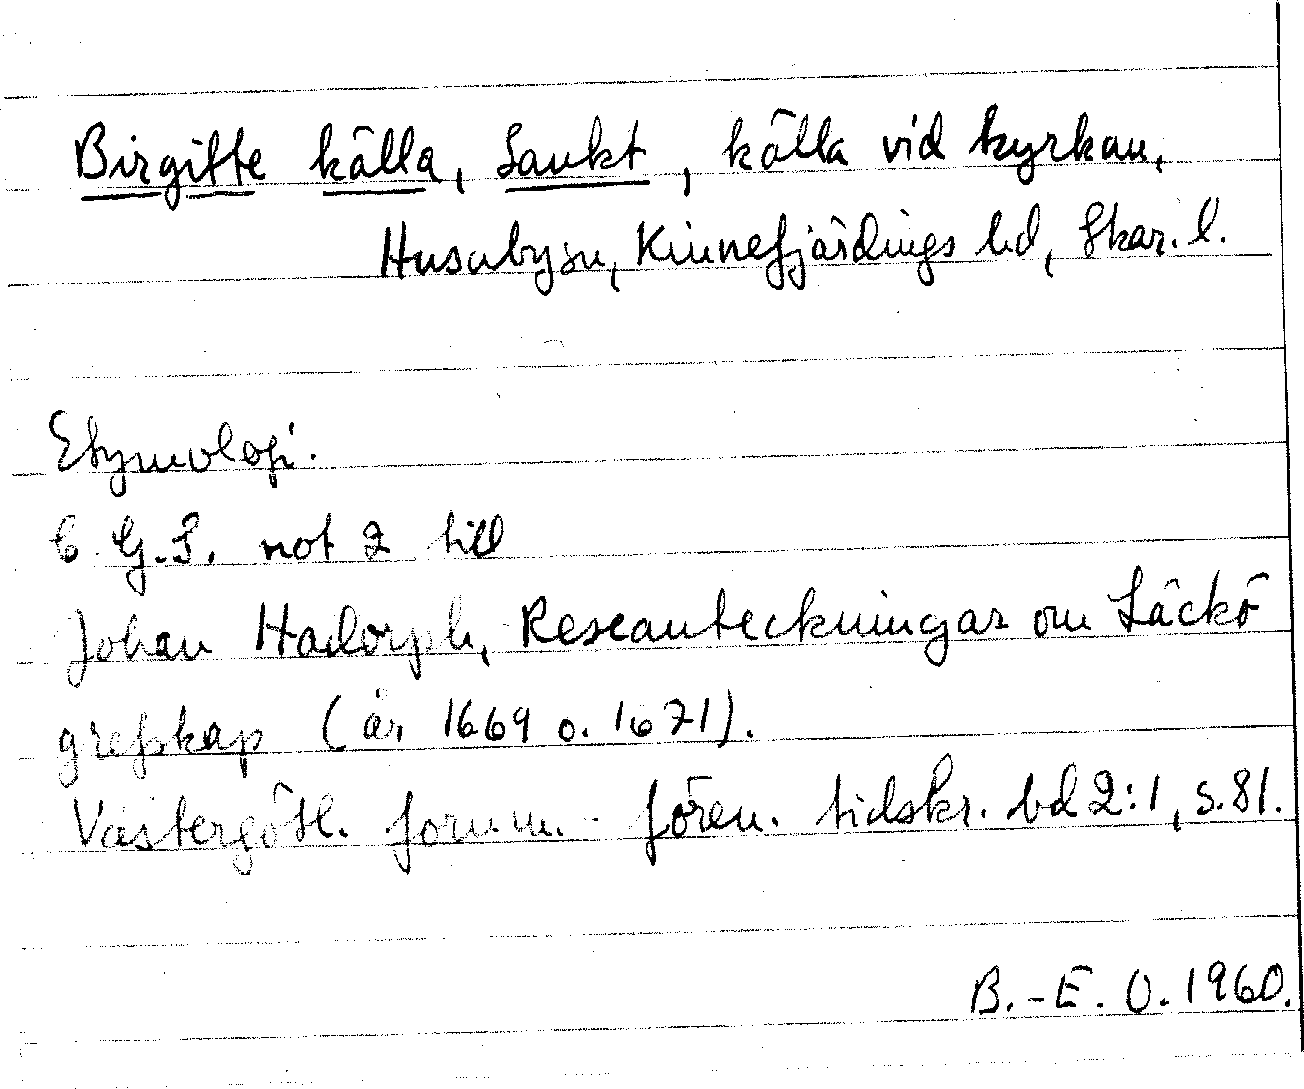 Birgitte källa, Sankt, källa vid kyrkan,
Husaby sn, Kinnefjärdings hd, Skar. l.
Etymologi.
C G. S. not 2 till
Johan Hadorph, Reseanteckningar om Läckö
grefskap (år 1669 o. 1671).
Västergötl. fornm. fören. tidskr. bd 2:1, s. 81.
B.-E. O. 1960.